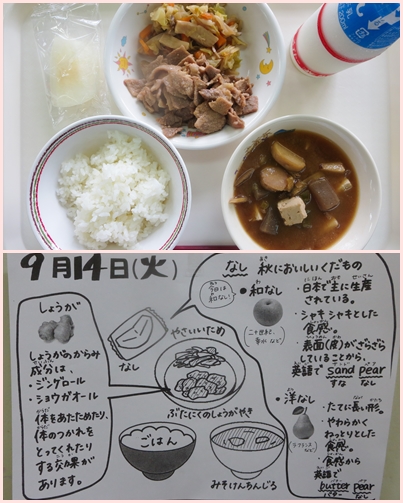 9月14日(火)
しょうが
しょうがのからみ
成分は、
・ジンゲロール
・ショウガオール
体をあたためたり、
体のつかれを
とってくれたり
する効果が
あります。
なし
やさいいため
ぶたにくのしょうがやき
ごはん
みそけんちんじる
なし 秋においしいくだもの
今日は
和なし
・和なし
(二十世き、
幸水 など)
・日本で主に生産
されている。
・シャキシャキとした
食感。
・表面(皮)がざらざら
していることから、
英語で sand pear
すな なし
・洋なし
(ラ・フランス
など)
・たてに長い形。
・やわらかく
ねっとりとした
食感。
・食感から
英語で
butter pear
バター なし